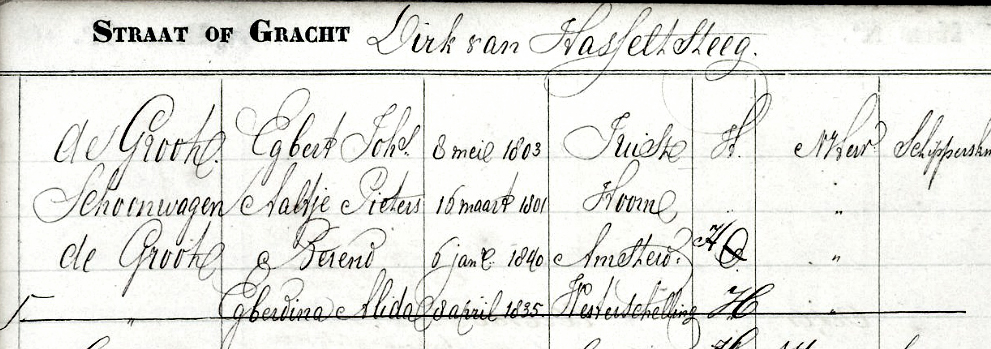 STRAAT OF GRACHT Dirk van Hasselt Steeg.
de Groote. Egbert Johs. 8 mei 1803 H. N Herv. Schipperskn
Schoonwagen Aaltje Pieters 16 maart 1801 Hoorne "
de Groote Berend 6 jan. 1840 Amsterd. H "
" Egberdina Alida 8 april 1835 Westerschelling H "